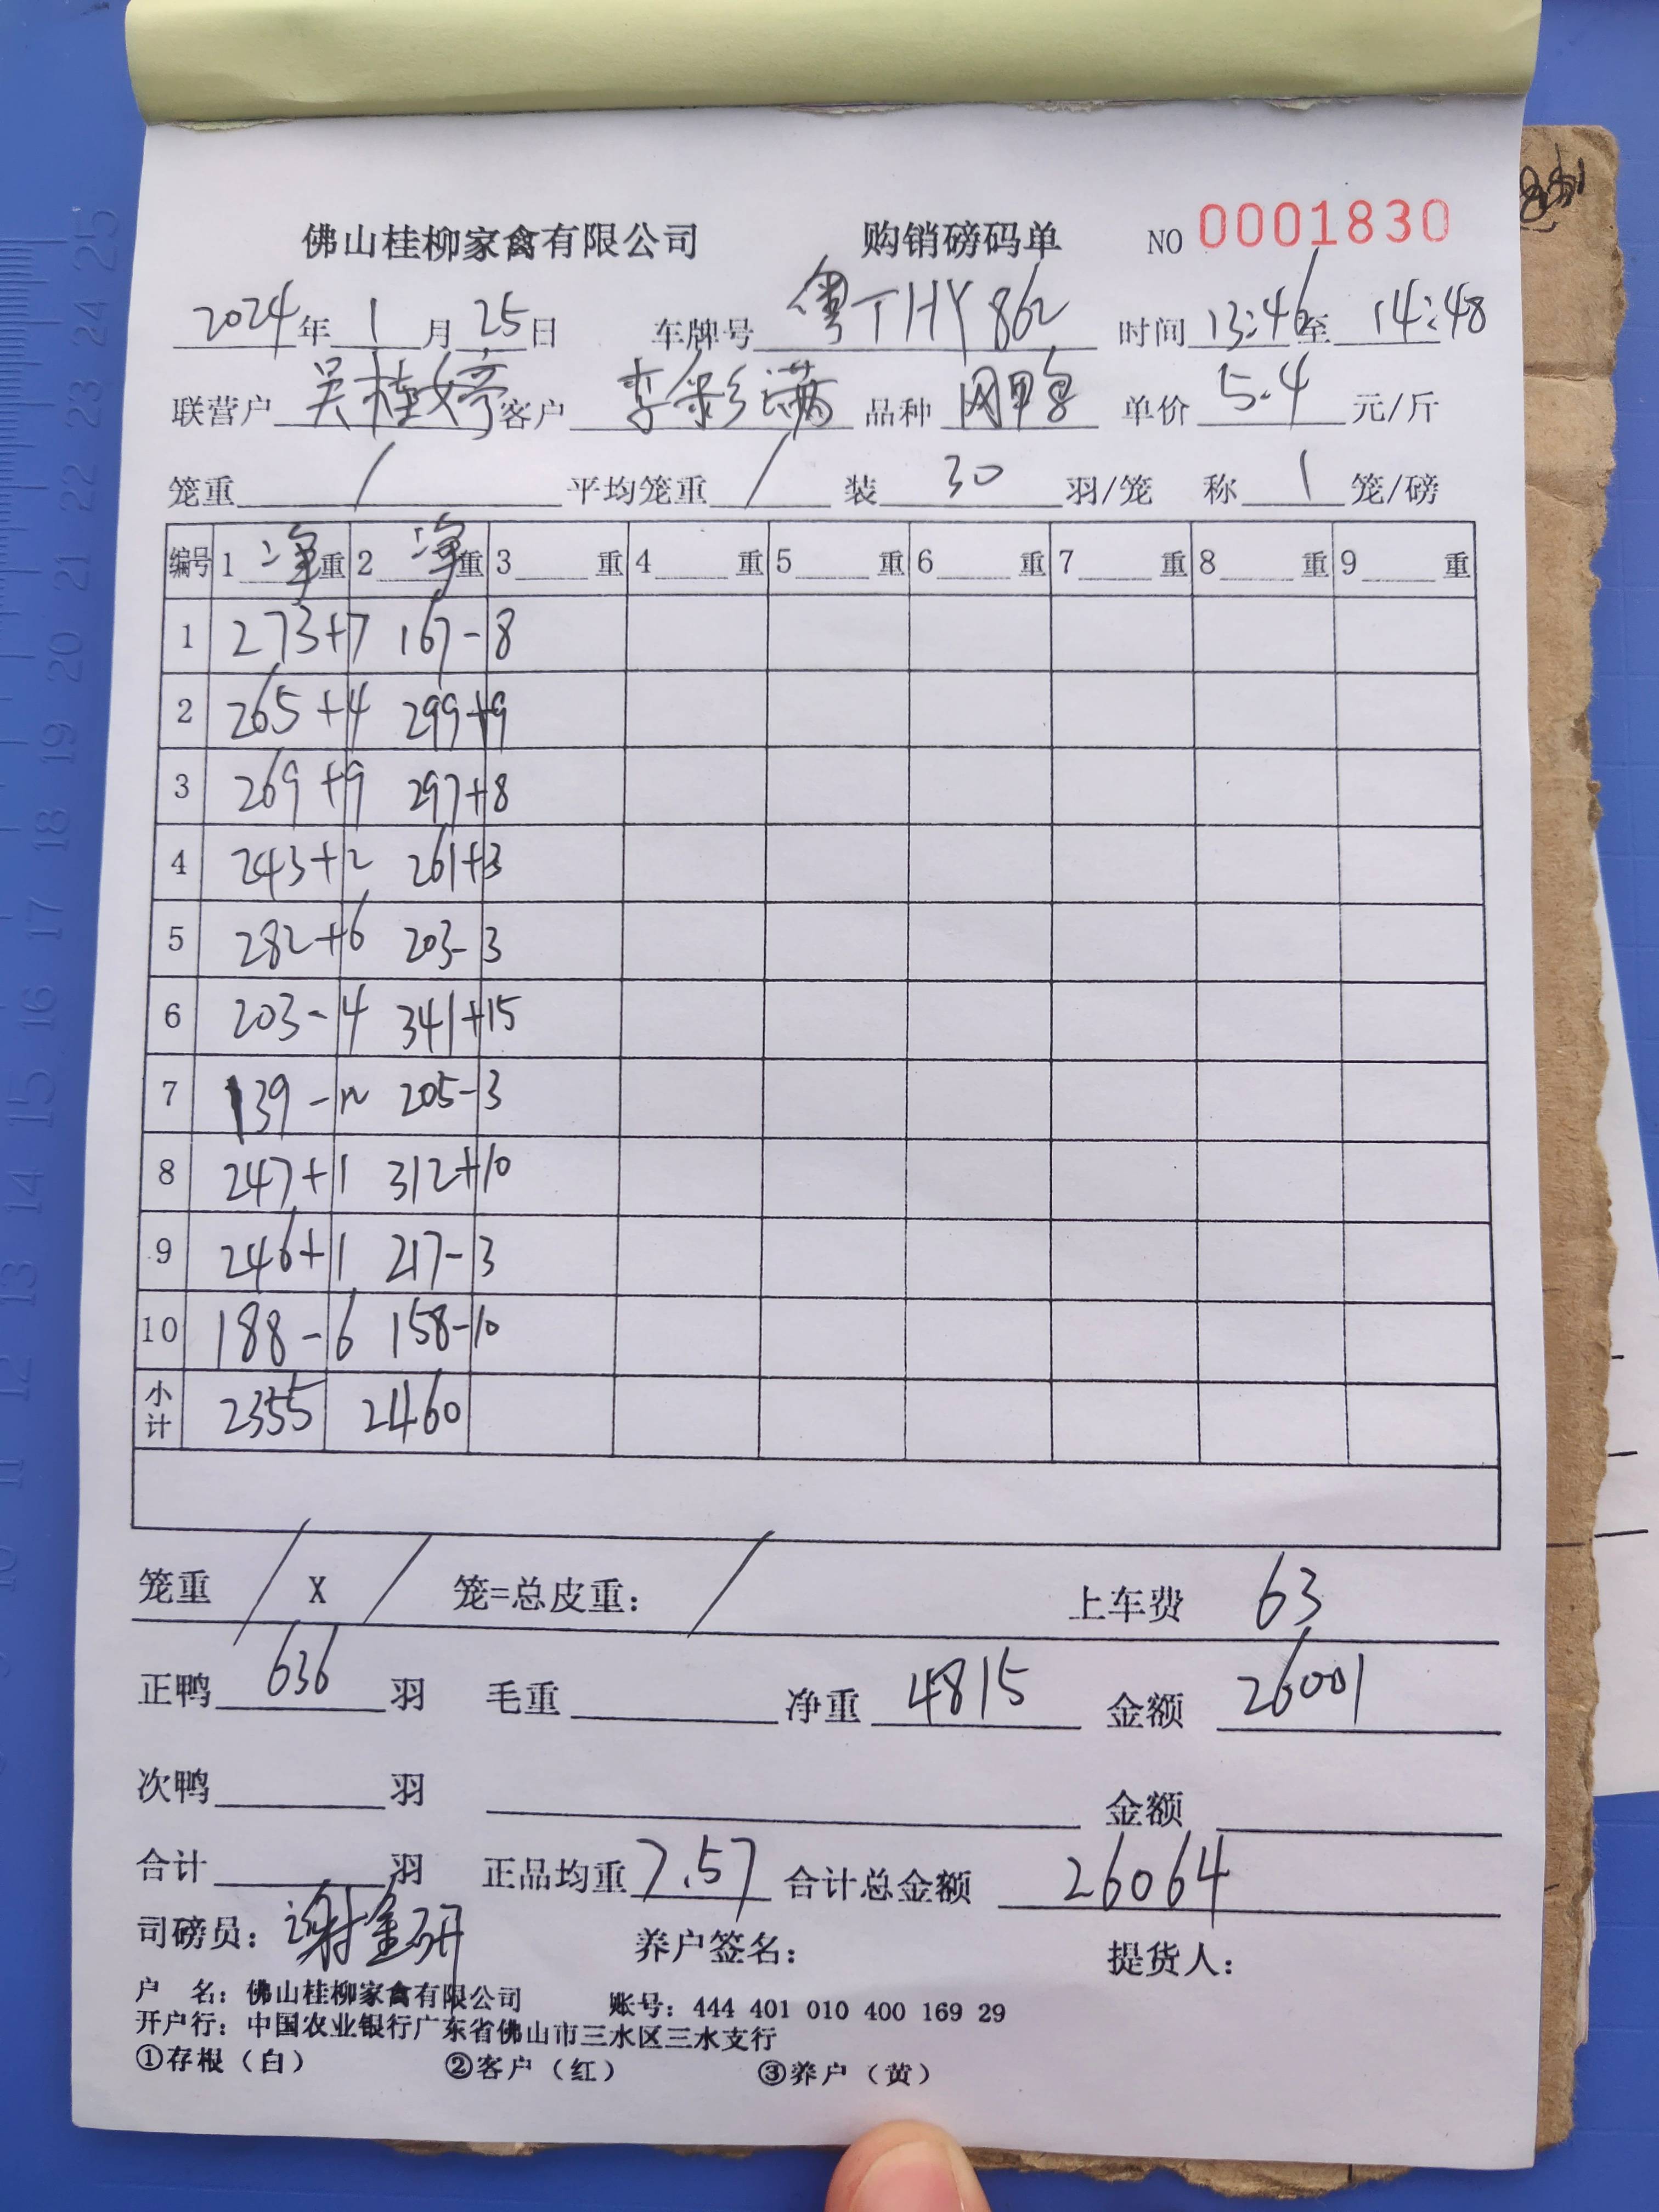 佛山桂柳家禽有限公司 购销磅码单 NO 0001830
2024年1月25日 车牌号 粤THY862 时间 13:46至14:48
联营户 吴桂婷 客户 李彩满 品种 网鸭 单价 5.4 元/斤
笼重 / 平均笼重 / 装 30 羽/笼 称 1 笼/磅
编号 1 净重 2 净重 3 重 4 重 5 重 6 重 7 重 8 重 9 重
1 273+7 167-8
2 265+4 299+9
3 269+9 297+8
4 243+2 261+3
5 282+6 203-3
6 203-4 341+15
7 139- 205-3
8 247+1 312+10
9 246+1 217-3
10 188-6 158-10
小计 2355 2460
笼重 / X / 笼=总皮重: / 上车费 63
正鸭 636 羽 毛重 净重 4815 金额 26001
次鸭 羽 金额
合计 羽 正品均重 7.57 合计总金额 26064
司磅员: 谢金研 养户签名: 提货人:
户 名: 佛山桂柳家禽有限公司 账号: 444 401 010 400 169 29
开户行: 中国农业银行广东省佛山市三水区三水支行
①存根(白) ②客户(红) ③养户(黄)
25
24
23
22
21
20
19
18
17
16
15
14
13
12
11
10